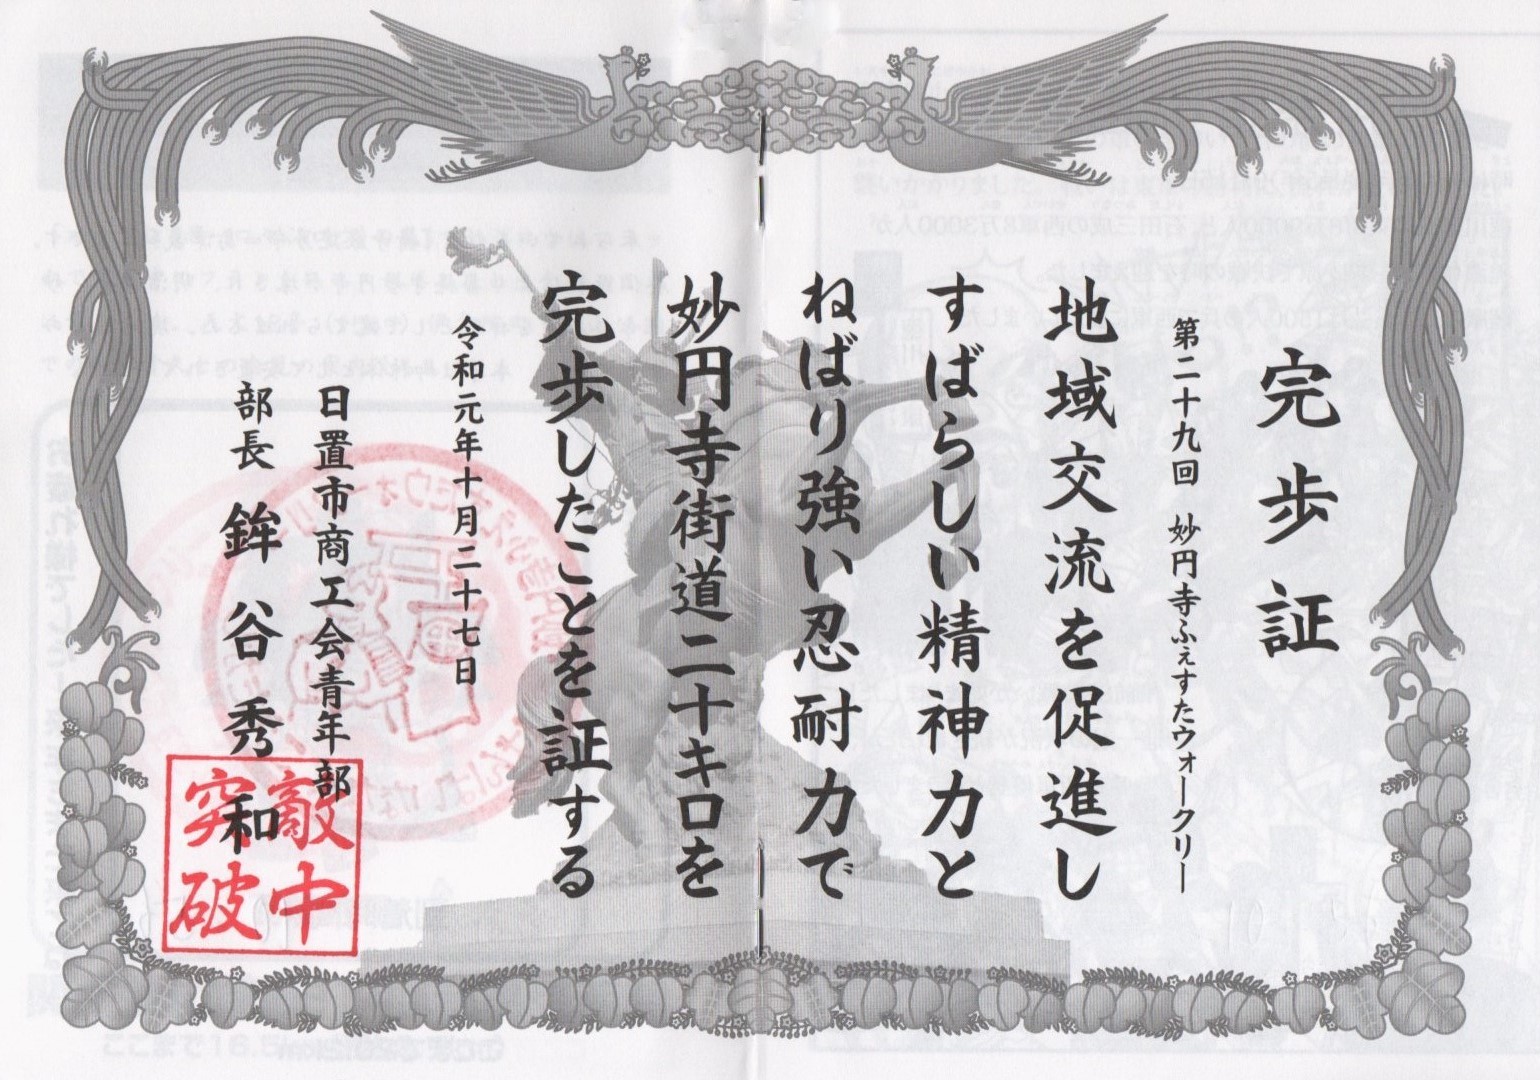 完歩証
第二十九回 妙円寺ふぇすたウォークリー
地域交流を促進し
すばらしい精神力と
ねばり強い忍耐力で
妙円寺街道二十キロを
完歩したことを証する
令和元年十月二十七日
日置市商工会青年部
部長 鉾谷秀和
敵中
突破